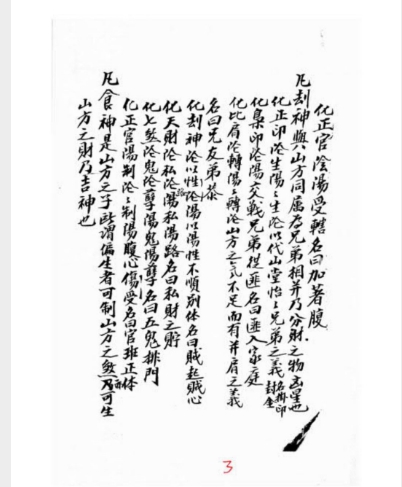 化正官淦陽受轄名曰加著腹
凡刦神與山方同屬為兄弟相并乃分財之物凶星也
化正印淦生陽陽生淦以代山堂怡怡兄弟之義名掛印封金
化梟印淦淦陽交戰兄弟從匪名曰匪入家庭
化比肩淦轉陽陽轉淦山方之氣不足而有并肩之義
名曰兄友弟恭
化刦神淦以性淦陽以陽性不順別体名曰賊起賊心
化天財淦私淦陽私陽路名曰私財之貯
化七煞淦鬼淦孽陽鬼陽孽名曰五鬼排門
化正官陽制淦淦制陽腹心傷受名曰官班正体
凡食神是山方之子所謂偏生者可制山方之煞乃可生
山方之財乃吉神也
3